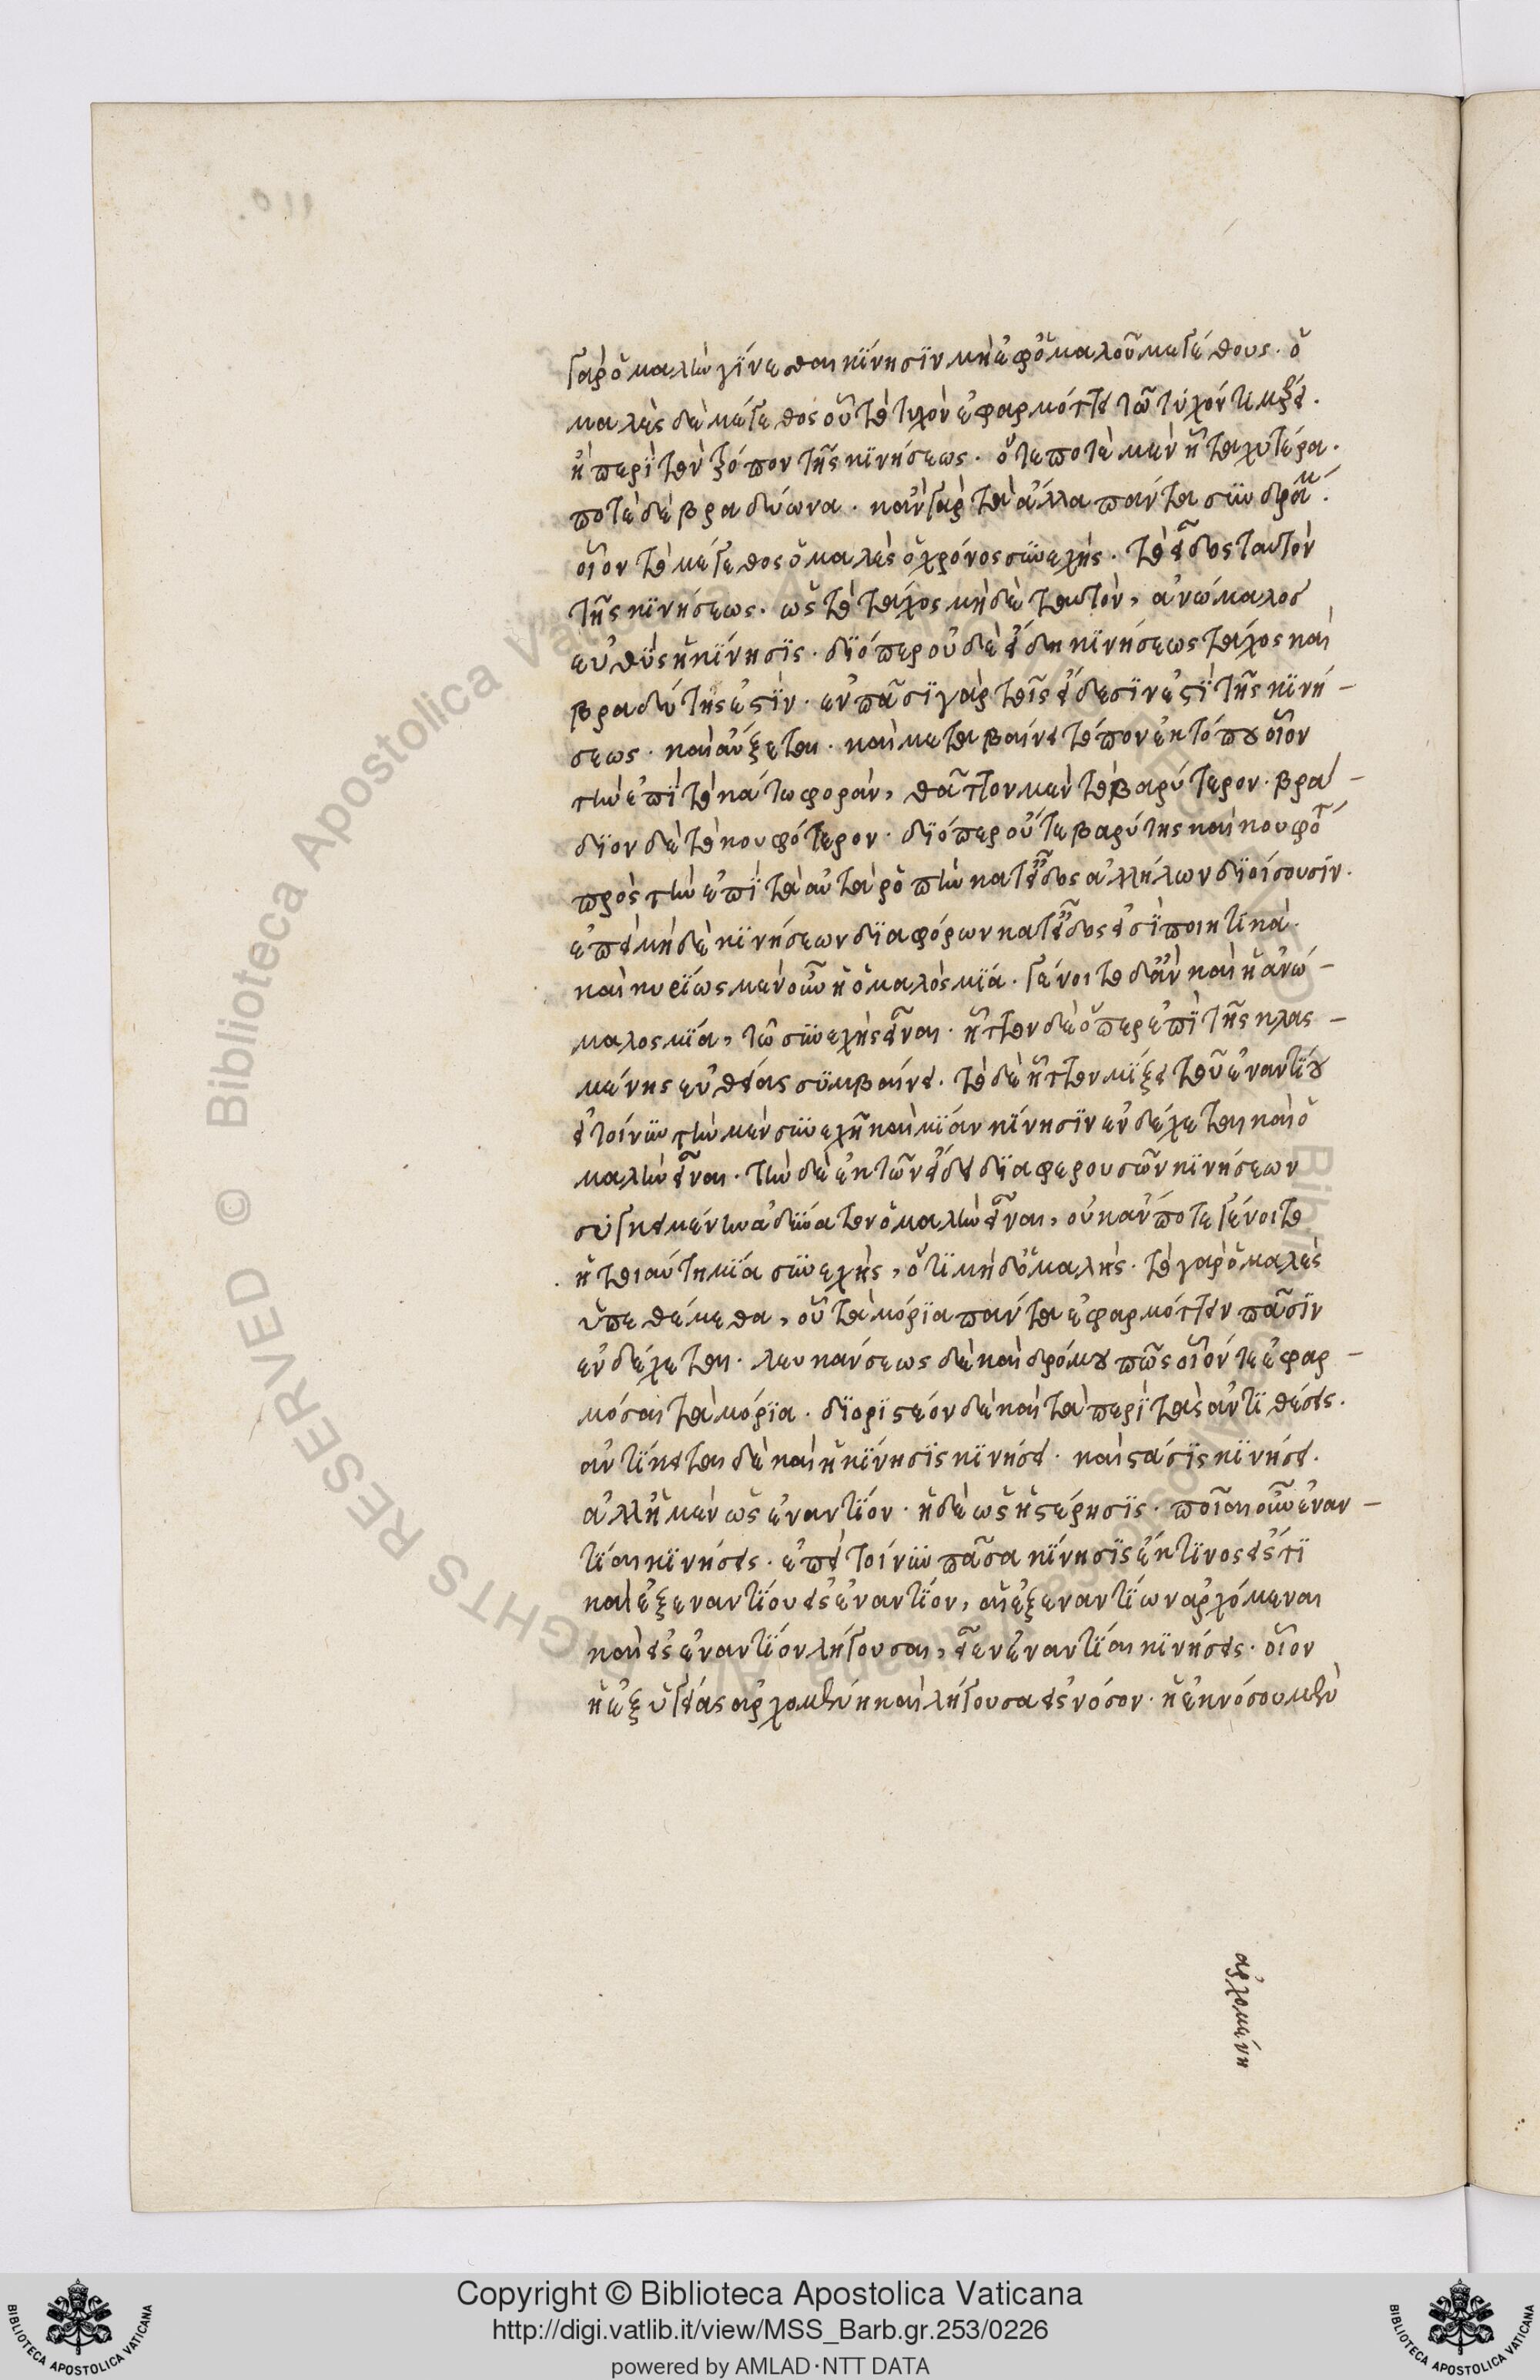 γὰρ ὁμαλὴν γίνεσθαι κίνησιν μὴ ἐφ' ὁμαλοῦ μεγέθους. ὁ
μαλὲς δὲ μέγεθος οὗ τὸ τυχὸν ἐφαρμόττει τῶ τυχόντι μέρει.
ἢ περὶ τὸν τρόπον τῆς κινήσεως. ὅτε ποτὲ μὲν ἦ ταχυτέρα.
ποτὲ δὲ βραδίωνα. κἂν γὰρ τὰ ἄλλα πάντα συνδράμ.
οἷον τὸ μέγεθος ὁμαλὲς ὁ χρόνος συνεχής. τὸ εἶδος ταυτὸν
τῆς κινήσεως. ὡς τὸ τάχος μὴ δὲ ταυτὸν, ἀνώμαλος
εὐθὺς ἡ κίνησις. διόπερ οὐδὲ εἴδη κινήσεως τάχος καὶ
βραδύτης ἐστὶν. ἐν πᾶσι γὰρ τοῖς εἴδεσιν ἐστὶ τῆς κινή-
σεως. καὶ αὔξεται. καὶ μεταβαίνει τόπον ἐκ τόπου οἷον
τὴν ἐπὶ τὸ κάτω φορὰν, θᾶττον μὲν τὸ βαρύτερον. βρα-
διον δὲ τὸ κουφότερον. διόπερ οὔτε βαρύτης καὶ κουφότ
πρὸς τὴν ἐπὶ τὰ αὐτὰ ῥοπὴν κατ' εἶδος ἀλλήλων διοίσουσιν.
ἐπεὶ μὴ δὲ κινήσεων διαφόρων κατ' εἶδος εἰσὶ ποιητικὰ.
καὶ κυρίως μὲν οὖν ἡ ὁμαλὸς μία. γένοιτο δ' ἂν καὶ ἡ ἀνώ-
μαλος μία, τῶ συνεχὴς εἶναι. ἧττον δὲ ὅπερ ἐπὶ τῆς κλας-
μένης εὐθείας συμβαίνει. τὸ δὲ ἧττον μίξει τοῦ ἐναντίου
εἰ τοίνυν τὴν μὲν συνεχῆ καὶ μίαν κίνησιν ἐνδέχεται καὶ ὁ
μαλὴν εἶναι. τὴν δὲ ἐκ τῶν εἴδει διαφερουσῶν κινήσεων
συγκειμένην ἀδύνατον ὁμαλὴν εἶναι, οὐκ ἄν ποτε γένοιτο
ἡ τοιαύτη μία συνεχὴς, ὅτι μὴ δ' ὁμαλής. τὸ γὰρ ὁμαλὲς
ὑπεθέμεθα, οὗ τὰ μόρια πάντα ἐφαρμόττειν πᾶσιν
ἐνδέχεται. λευκάνσεως δὲ καὶ δρόμου πῶς οἷόν τε ἐφαρ-
μόσαι τὰ μόρια. διοριστέον δὲ καὶ τὰ περὶ τὰς ἀντιθέσεις.
ἀντίκειται δὲ καὶ ἡ κίνησις κινήσει. καὶ στάσις κινήσει.
ἀλλ' ἡ μὲν ὡς ἐναντίον. ἡ δὲ ὡς ἡ στέρησις. ποῖαι οὖν ἐναν-
τίαι κινήσεις. ἐπεὶ τοίνυν πᾶσα κίνησις ἔκ τινος εἴς τι
καὶ ἐξ ἐναντίου εἰς ἐναντίον, αἱ ἐξ ἐναντίων ἀρχόμεναι
καὶ εἰς ἐναντίον λήγουσαι, εἶεν ἐναντίαι κινήσεις. οἷον
ἡ ἐξ ὑγείας ἀρχομένη καὶ λήγουσα εἰς νόσον. ἡ ἐκ νόσου μὲν
ἀρχομένη
Copyright © Biblioteca Apostolica Vaticana
http://digi.vatlib.it/view/MSS_Barb.gr.253/0226
powered by AMLAD·NTT DATA